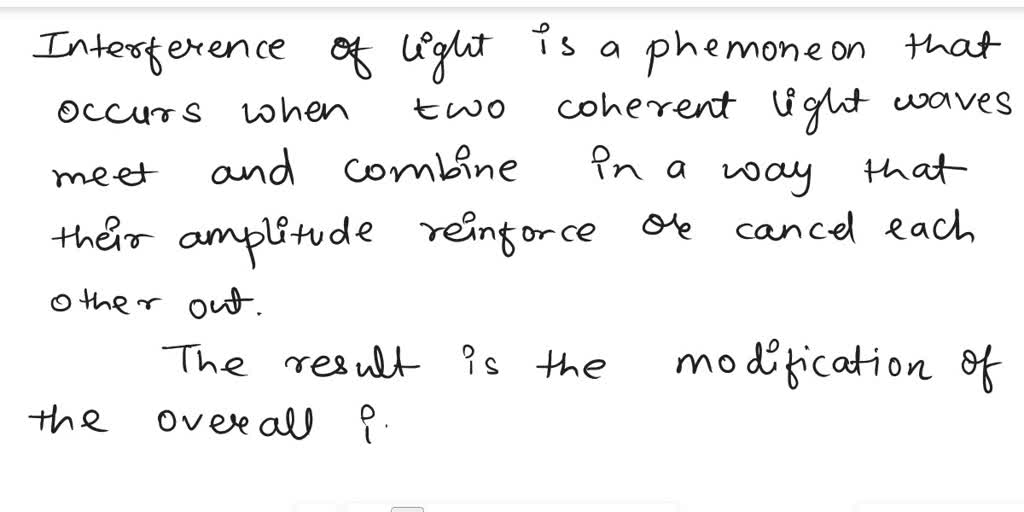 Interference of light is a phemoneon that
occurs when two coherent light waves
meet and combine in a way that
their amplitude reinforce or cancel each
other out.
The result is the modification of
the overall i.